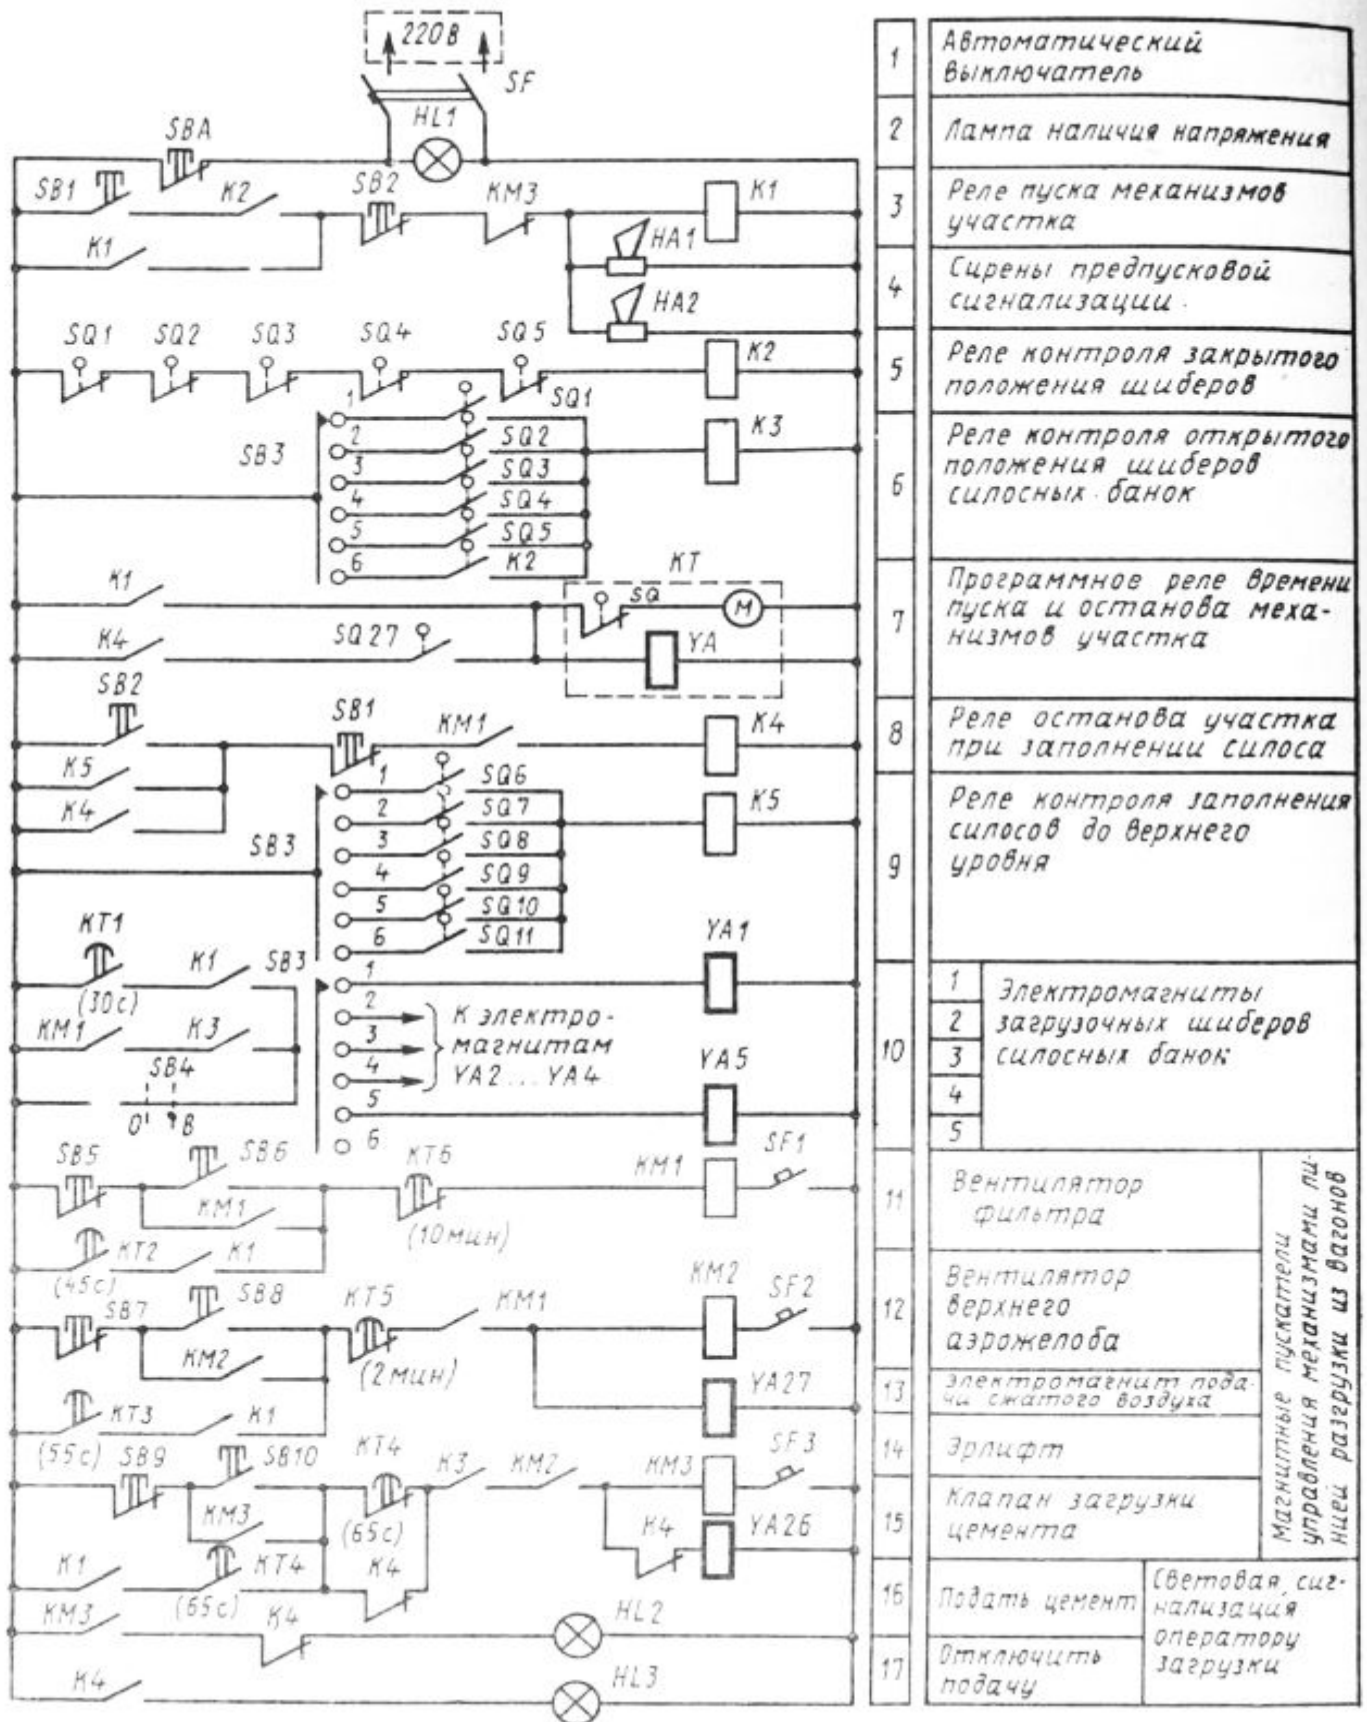 220В
SF
HL1
SBA
SB1
K2
SB2
КМ3
K1
K1
HA1
HA2
SQ1 SQ2 SQ3 SQ4 SQ5
K2
SB3
1 SQ1
2 SQ2
3 SQ3
4 SQ4
5 SQ5
6 K2
K3
K1
КТ
SQ
М
K4
SQ27
YA
SB2
SB1
КМ1
K4
K5
K4
SB3
1 SQ6
2 SQ7
3 SQ8
4 SQ9
5 SQ10
6 SQ11
K5
КТ1
(30с)
K1
SB3
YA1
КМ1
K3
SB4
О В
1
2
3
4
5
6
К электро-
магнитам
YA2...YA4
YA5
SB5
SB6
КТ6
(10мин)
КМ1
SF1
КМ1
КТ2
(45с)
K1
SB7
SB8
КТ5
(2мин)
КМ1
КМ2
SF2
КМ2
YA27
КТ3
(55с)
K1
SB9
SB10
КТ4
(65с)
K3
КМ2
КМ3
SF3
КМ3
K4
YA26
K1
КТ4
(65с)
K4
КМ3
K4
HL2
K4
HL3
1 Автоматический
выключатель
2 Лампа наличия напряжения
3 Реле пуска механизмов
участка
4 Сирены предпусковой
сигнализации
5 Реле контроля закрытого
положения шиберов
6 Реле контроля открытого
положения шиберов
силосных банок
7 Программное реле времени
пуска и останова меха-
низмов участка
8 Реле останова участка
при заполнении силоса
9 Реле контроля заполнения
силосов до верхнего
уровня
10
1
2
3
4
5
Электромагниты
загрузочных шиберов
силосных банок
11 Вентилятор
фильтра
12 Вентилятор
верхнего
аэрожелоба
13 Электромагнит пода-
чи сжатого воздуха
14 Эрлифт
15 Клапан загрузки
цемента
Магнитные пускатели
управления механизмами ли-
нией разгрузки из вагонов
16 Подать цемент
17 Отключить
подачу
Световая сиг-
нализация
оператору
загрузки